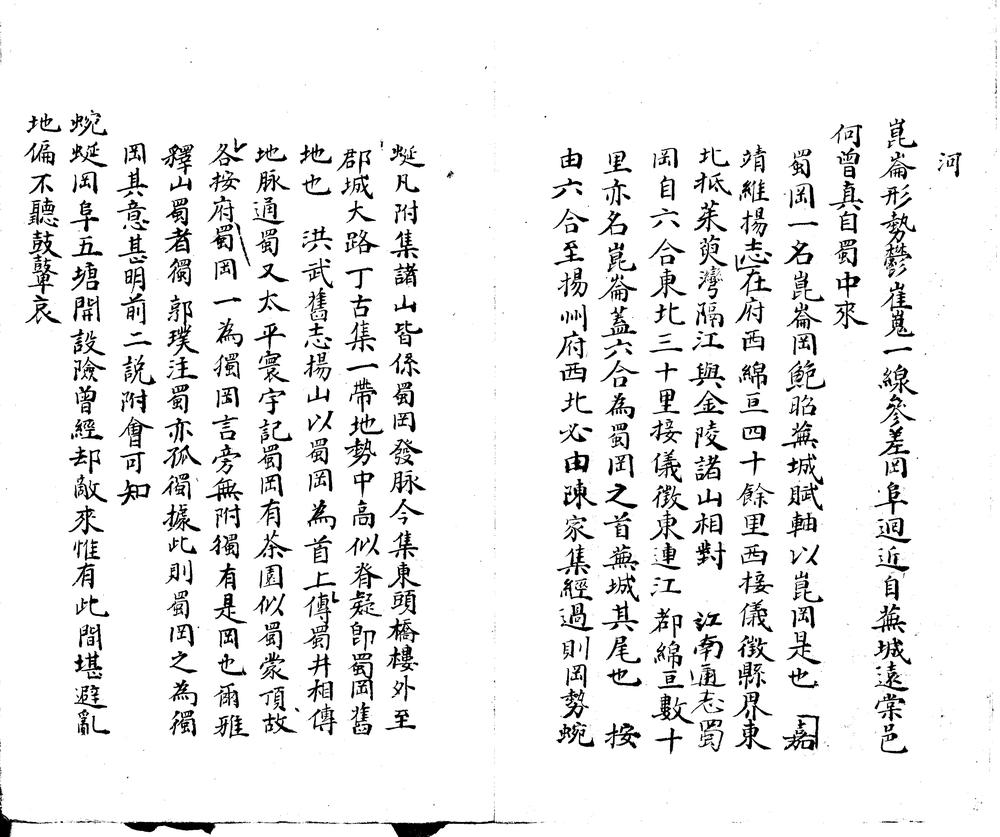 河
崑崙形勢鬱崔嵬一線參差岡阜迴近自蕪城遠棠邑
何曾真自蜀中來
蜀岡一名崑崙岡鮑昭蕪城賦軸以崑岡是也 嘉
靖維揚志在府西綿亘四十餘里西接儀徵縣界東
北抵茱萸灣隔江與金陵諸山相對 江南通志蜀
岡自六合東北三十里接儀徵東連江都綿亘數十
里亦名崑崙蓋六合為蜀岡之首蕪城其尾也 按
由六合至揚州府西北必由陳家集經過則岡勢蜿
蜒凡附集諸山皆係蜀岡發脉今集東頭橋樓外至
郡城大路丁古集一帶地勢中高似脊疑卽蜀岡舊
地也 洪武舊志揚山以蜀岡為首上傳蜀井相傳
地脉通蜀又太平寰宇記蜀岡有茶園似蜀蒙頂故
各按府蜀岡一為獨岡言旁無附獨有是岡也爾雅
釋山蜀者獨郭璞注蜀亦孤獨據此則蜀岡之為獨
岡其意甚明前二説附會可知
蜿蜒岡阜五塘開設險曾經却敵來惟有此間堪避亂
地偏不聽鼓鼙哀